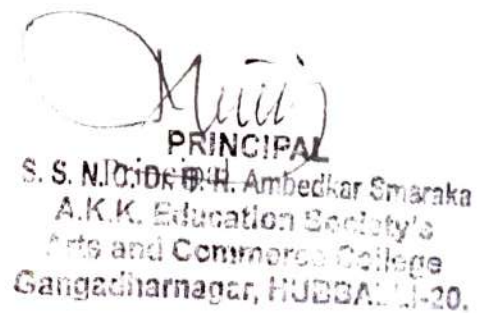 PRINCIPAL
Principal
S. S. N. Ambedkar Smaraka
A.K.K. Education Society's
Arts and Commerce College
Gangadharnagar, HUBBALLI-20.